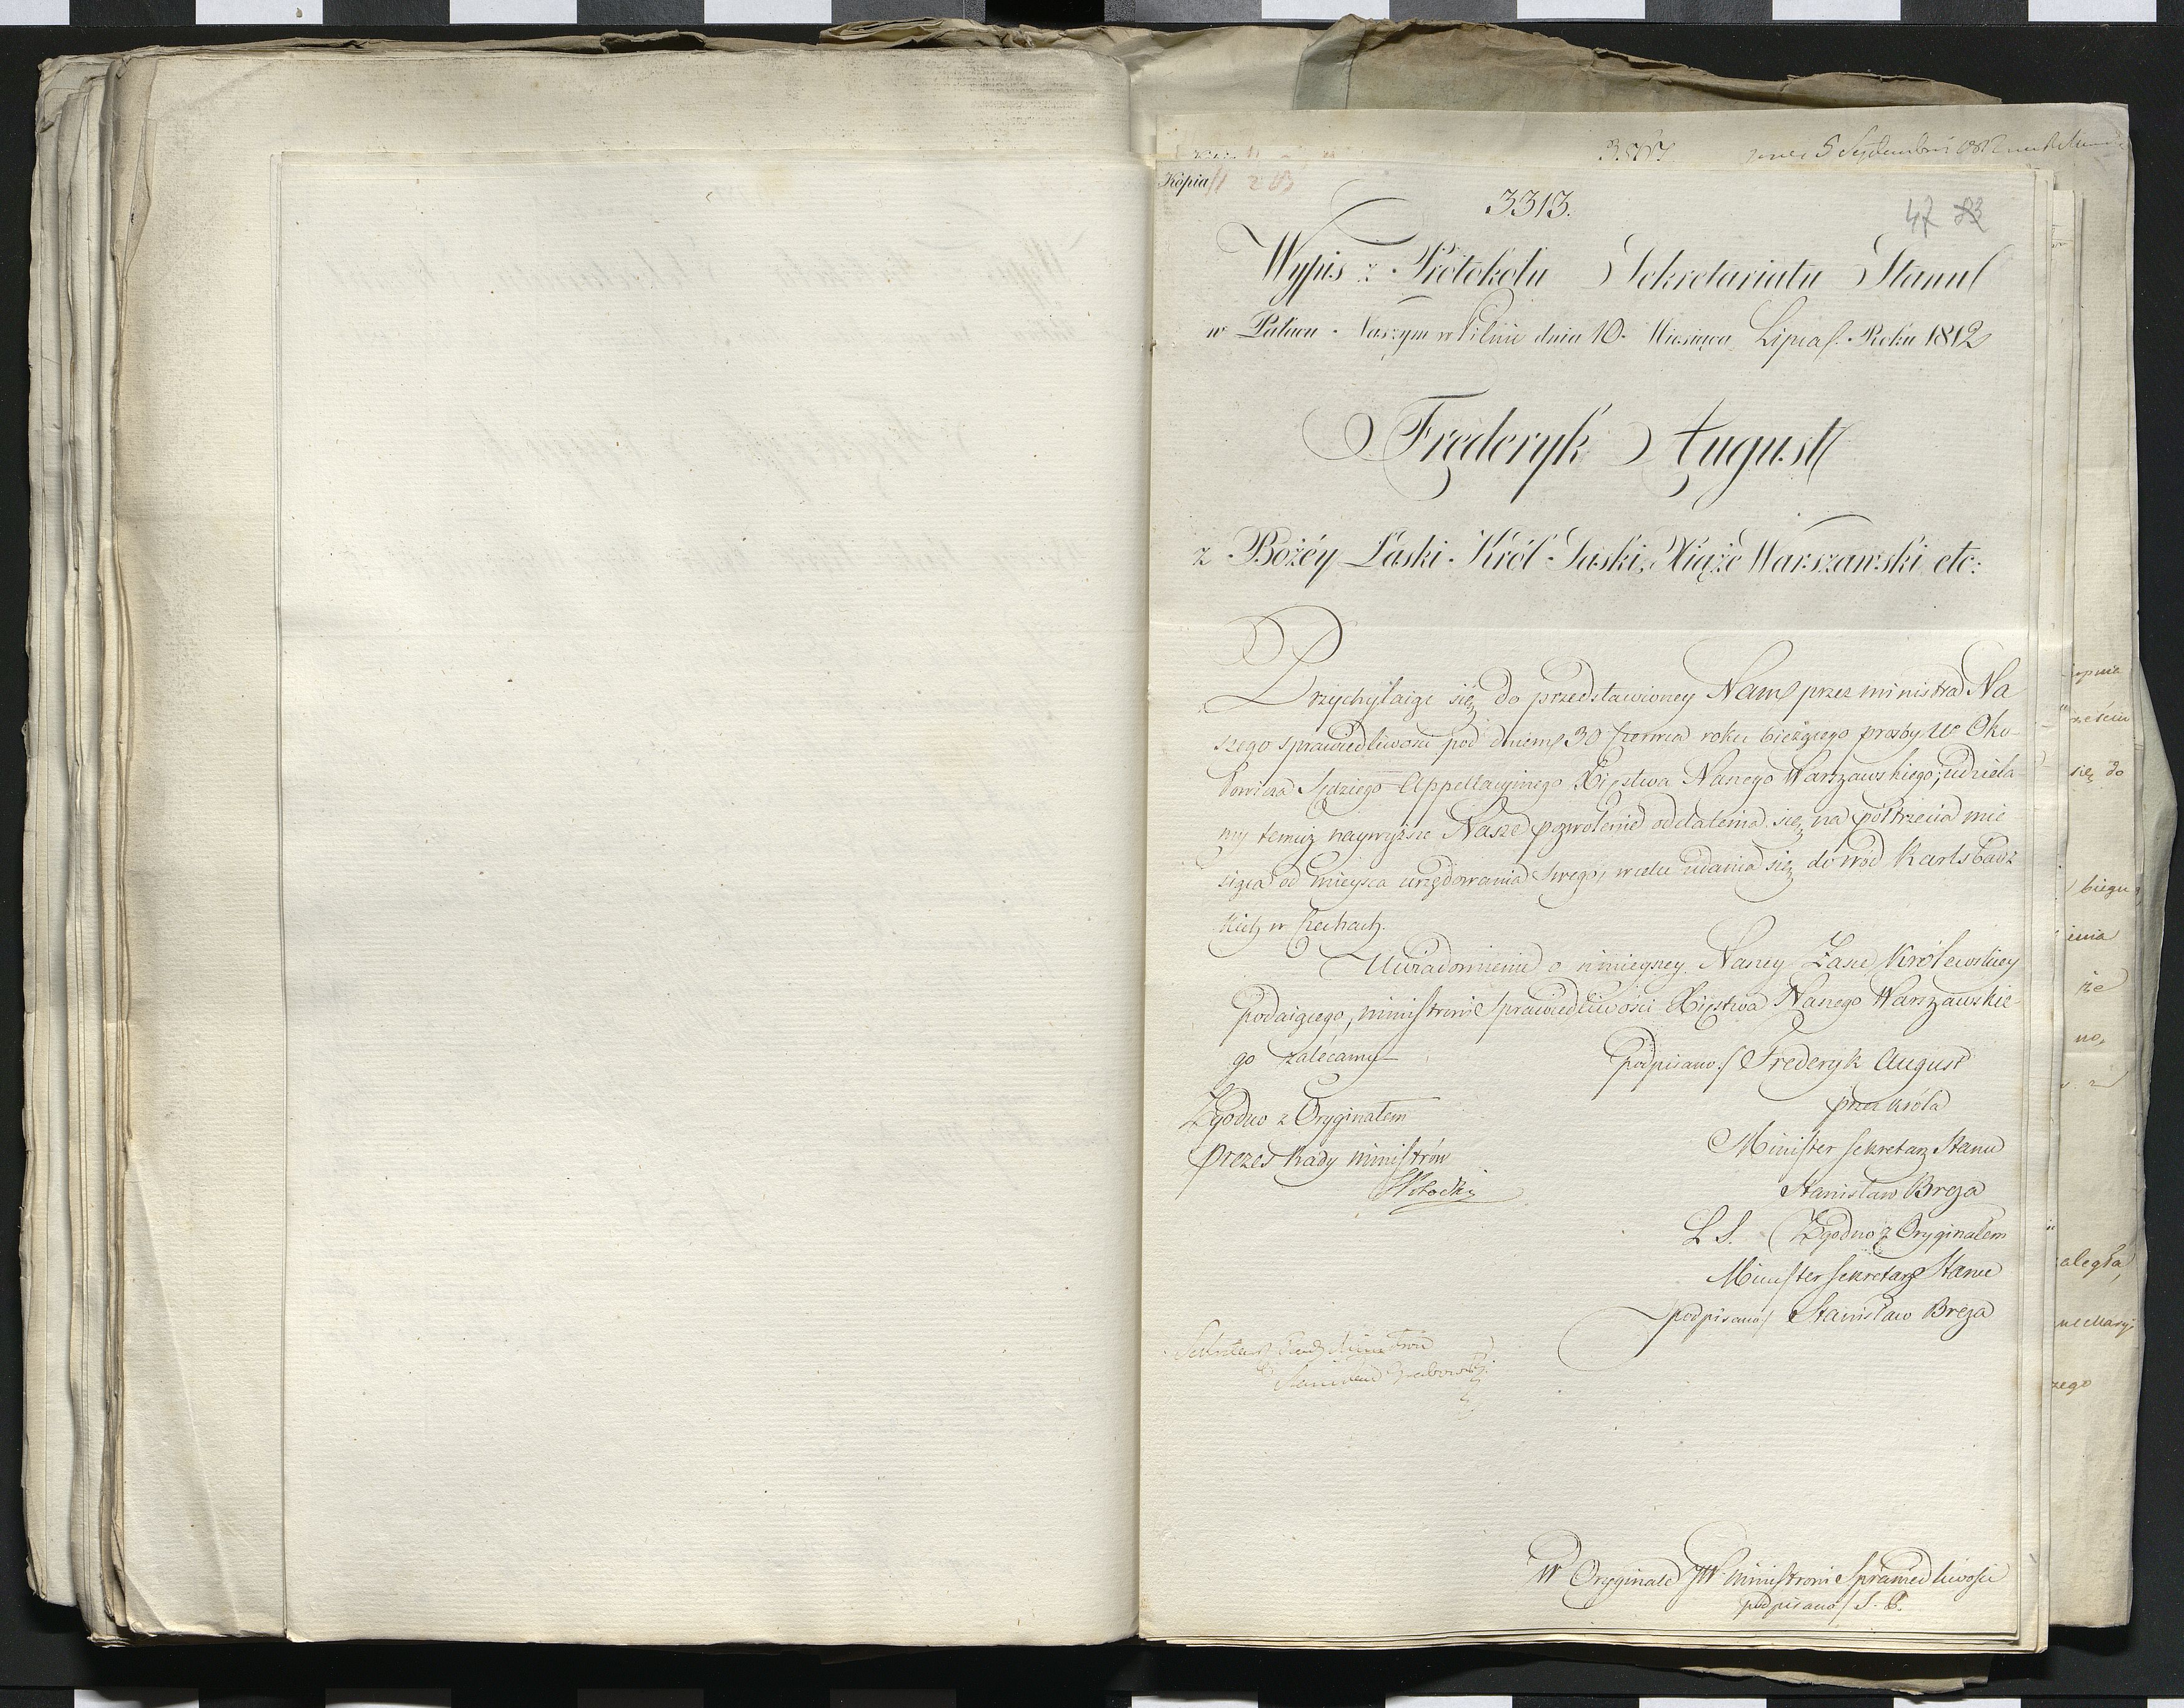 3313.
Kopia
47 83
Wypis z Protokołu Sekretariatu Stanu
w Pałacu Naszym w Pilnic dnia 10. Miesiąca Lipca Roku 1812
Fryderyk August
z Bożéy Łaski Król Saski, Xiążę Warszawski etc:
Przychylaiąc się do przedstawioney Nam przez ministra Na
szego sprawiedliwości pod dniem 30 Czerwca roku bieżącego prośby W Oko-
łowicza Sędziego Appellacyinego Xięstwa Naszego Warszawskiego, udziela
my temuż naywyższe Nasze pozwolenie oddalenia się na półtrzecia mie
siąca od mieysca urzędowania swego, w celu udania się do wód Karlsbadz
kich w Czechach.
Uwiadomienie o ninieyszey Naszey Łasce Królewskiey
podaiącego, ministrowi Sprawiedliwości Xięstwa Naszego Warszawskie-
go zalecamy
podpisano / Frederyk August
przez Króla
Minister Sekretarz Stanu
Stanisław Breza
L S. Zgodno z Oryginałem
Minister Sekretarz Stanu
podpisano / Stanisław Breza
Zgodno z Oryginałem
Prezes Rady Ministrów
Sekretarz Rady Ministrów
Stanisław Grabowski
W Oryginale JW. Ministrowi Sprawiedliwości
podpisano / S. B.
się do
biegu
że
no,
aległa,
zego